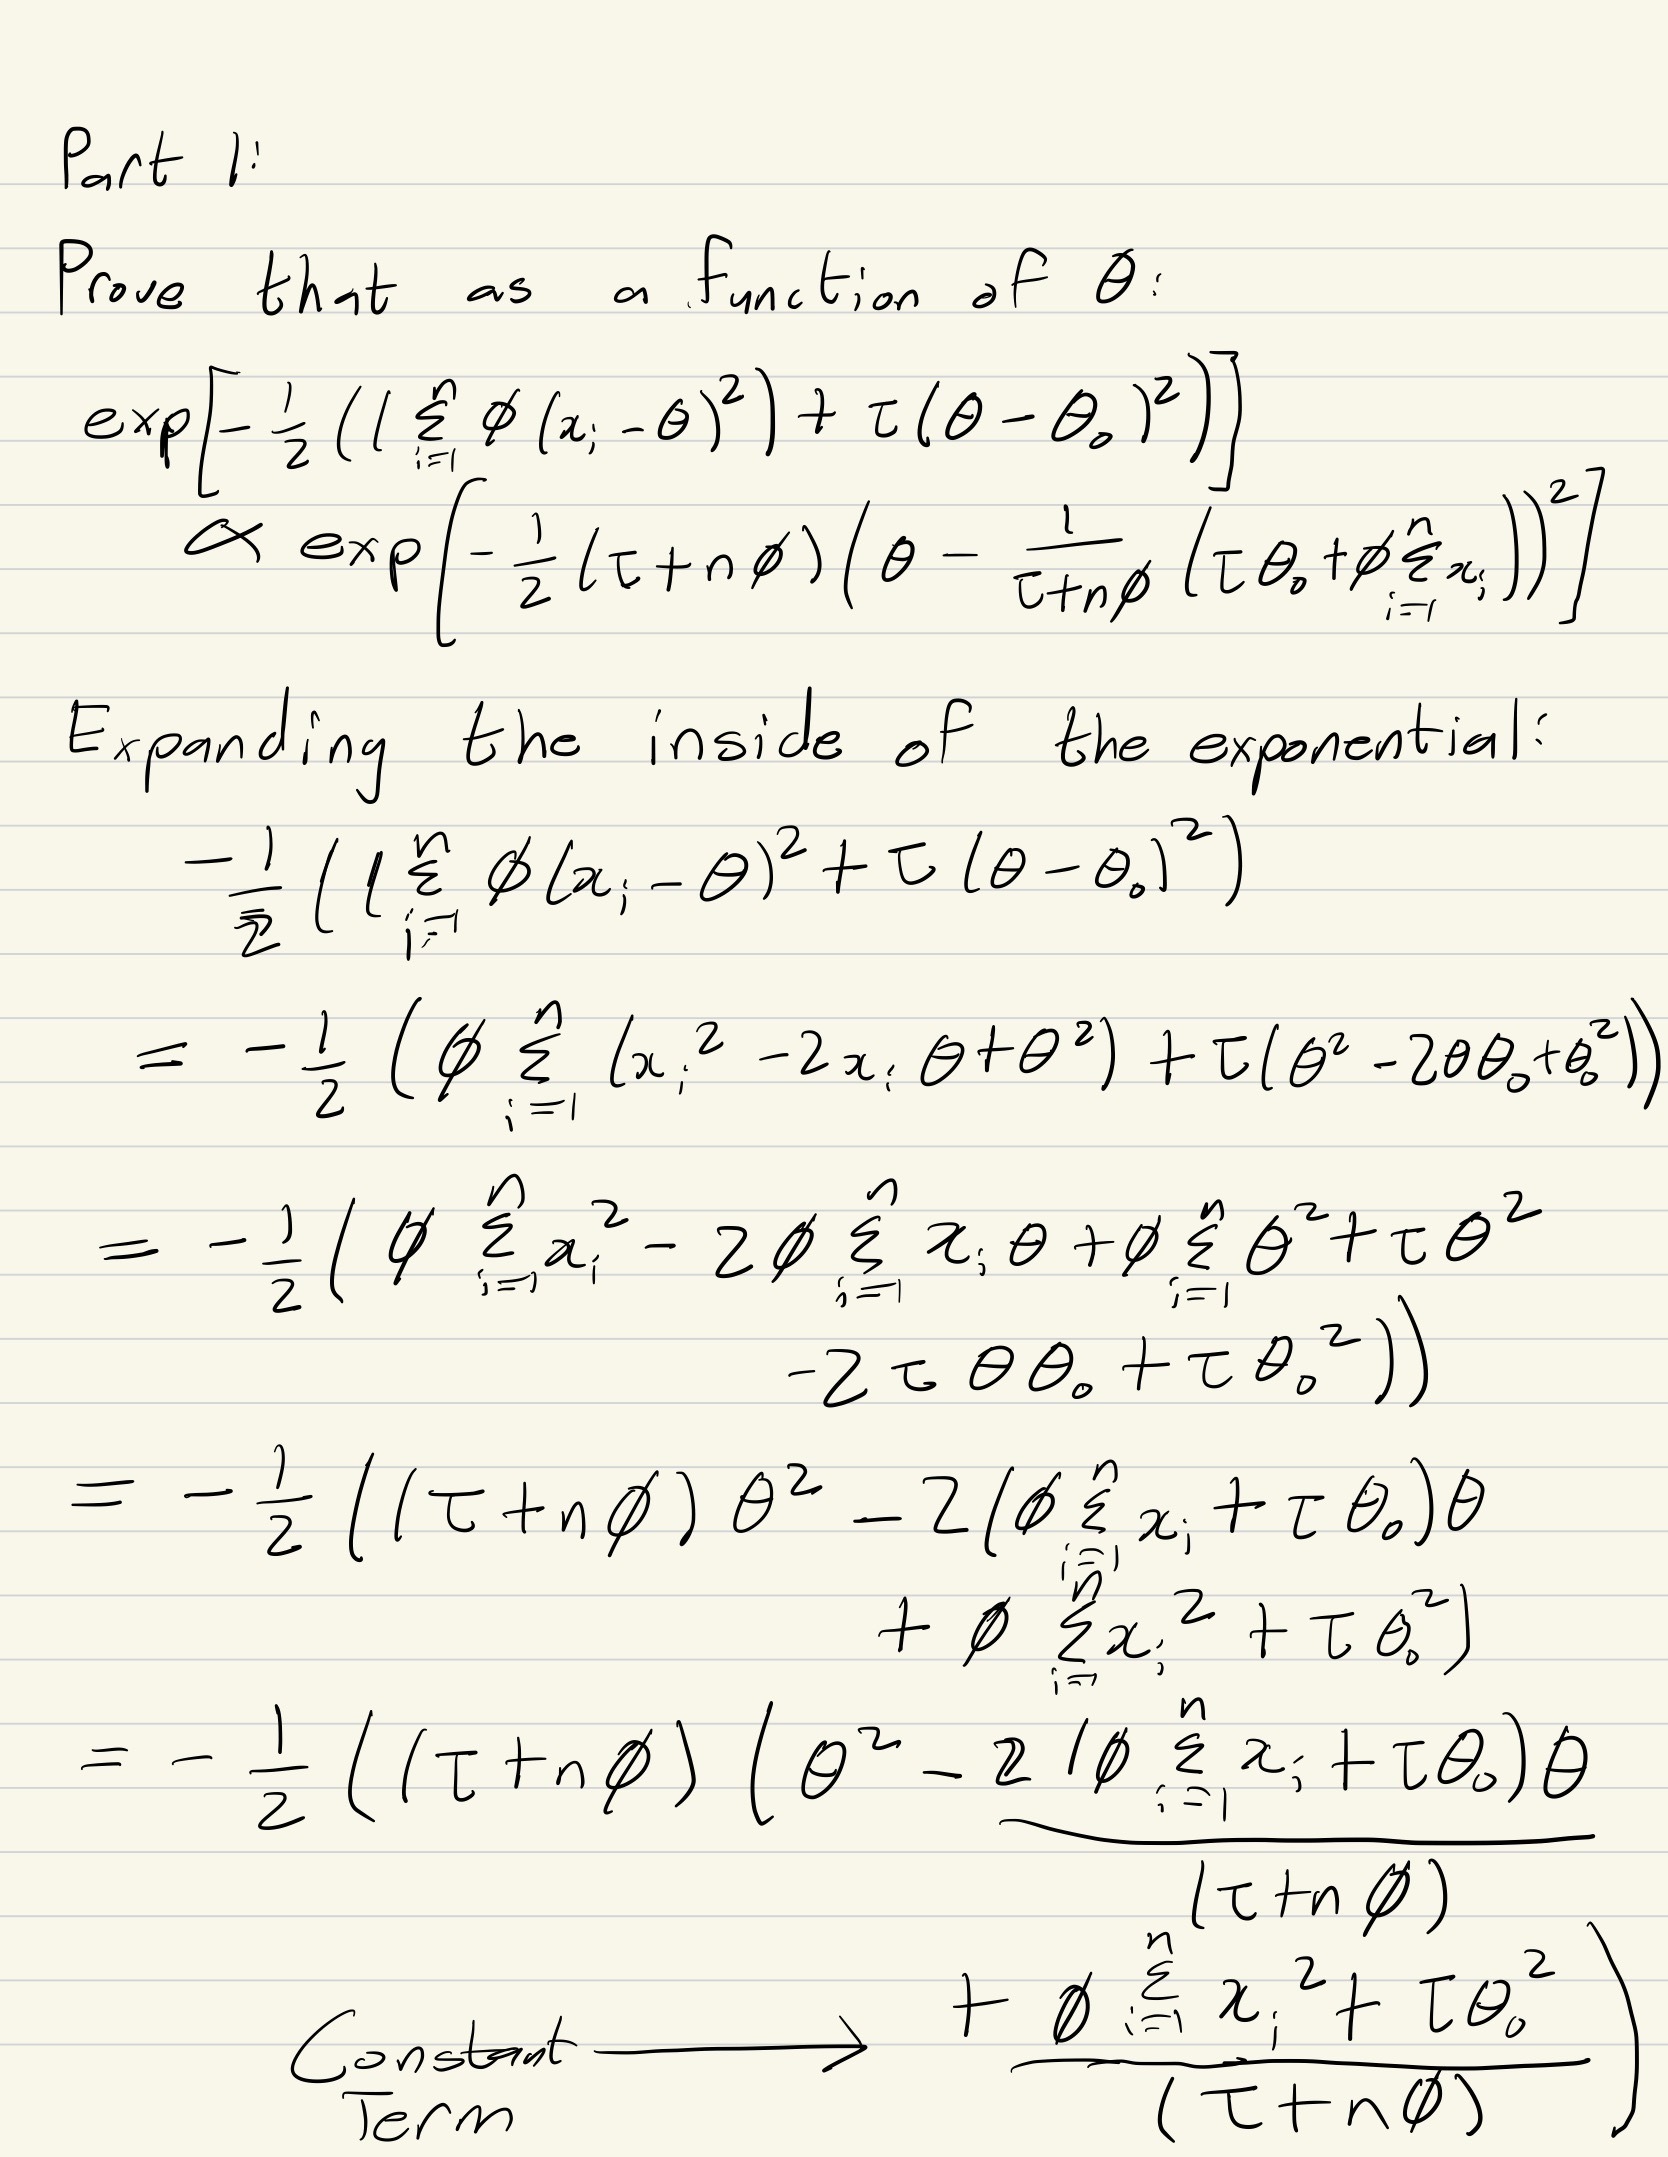 Part 1:
Prove that as a function of θ:
exp[-1/2 ((Σ_{i=1}^{n} φ(x_i - θ)^2) + τ(θ - θ_0)^2)]
∝ exp[-1/2 (τ+nφ)(θ - 1/(τ+nφ) (τθ_0 + φ Σ_{i=1}^{n} x_i))^2]
Expanding the inside of the exponential:
-1/2 ((Σ_{i=1}^{n} φ(x_i - θ)^2 + τ(θ - θ_0)^2)
= -1/2 (φ Σ_{i=1}^{n} (x_i^2 - 2x_i θ + θ^2) + τ(θ^2 - 2θθ_0 + θ_0^2))
= -1/2 (φ Σ_{i=1}^{n} x_i^2 - 2φ Σ_{i=1}^{n} x_i θ + φ Σ_{i=1}^{n} θ^2 + τθ^2
-2τθθ_0 + τθ_0^2))
= -1/2 ((τ+nφ)θ^2 - 2(φ Σ_{i=1}^{n} x_i + τθ_0)θ
+ φ Σ_{i=1}^{n} x_i^2 + τθ_0^2)
= -1/2 ((τ+nφ)(θ^2 - 2(φ Σ_{i=1}^{n} x_i + τθ_0)θ
(τ+nφ)
+ φ Σ_{i=1}^{n} x_i^2 + τθ_0^2)
Constant →
Term (τ+nφ)